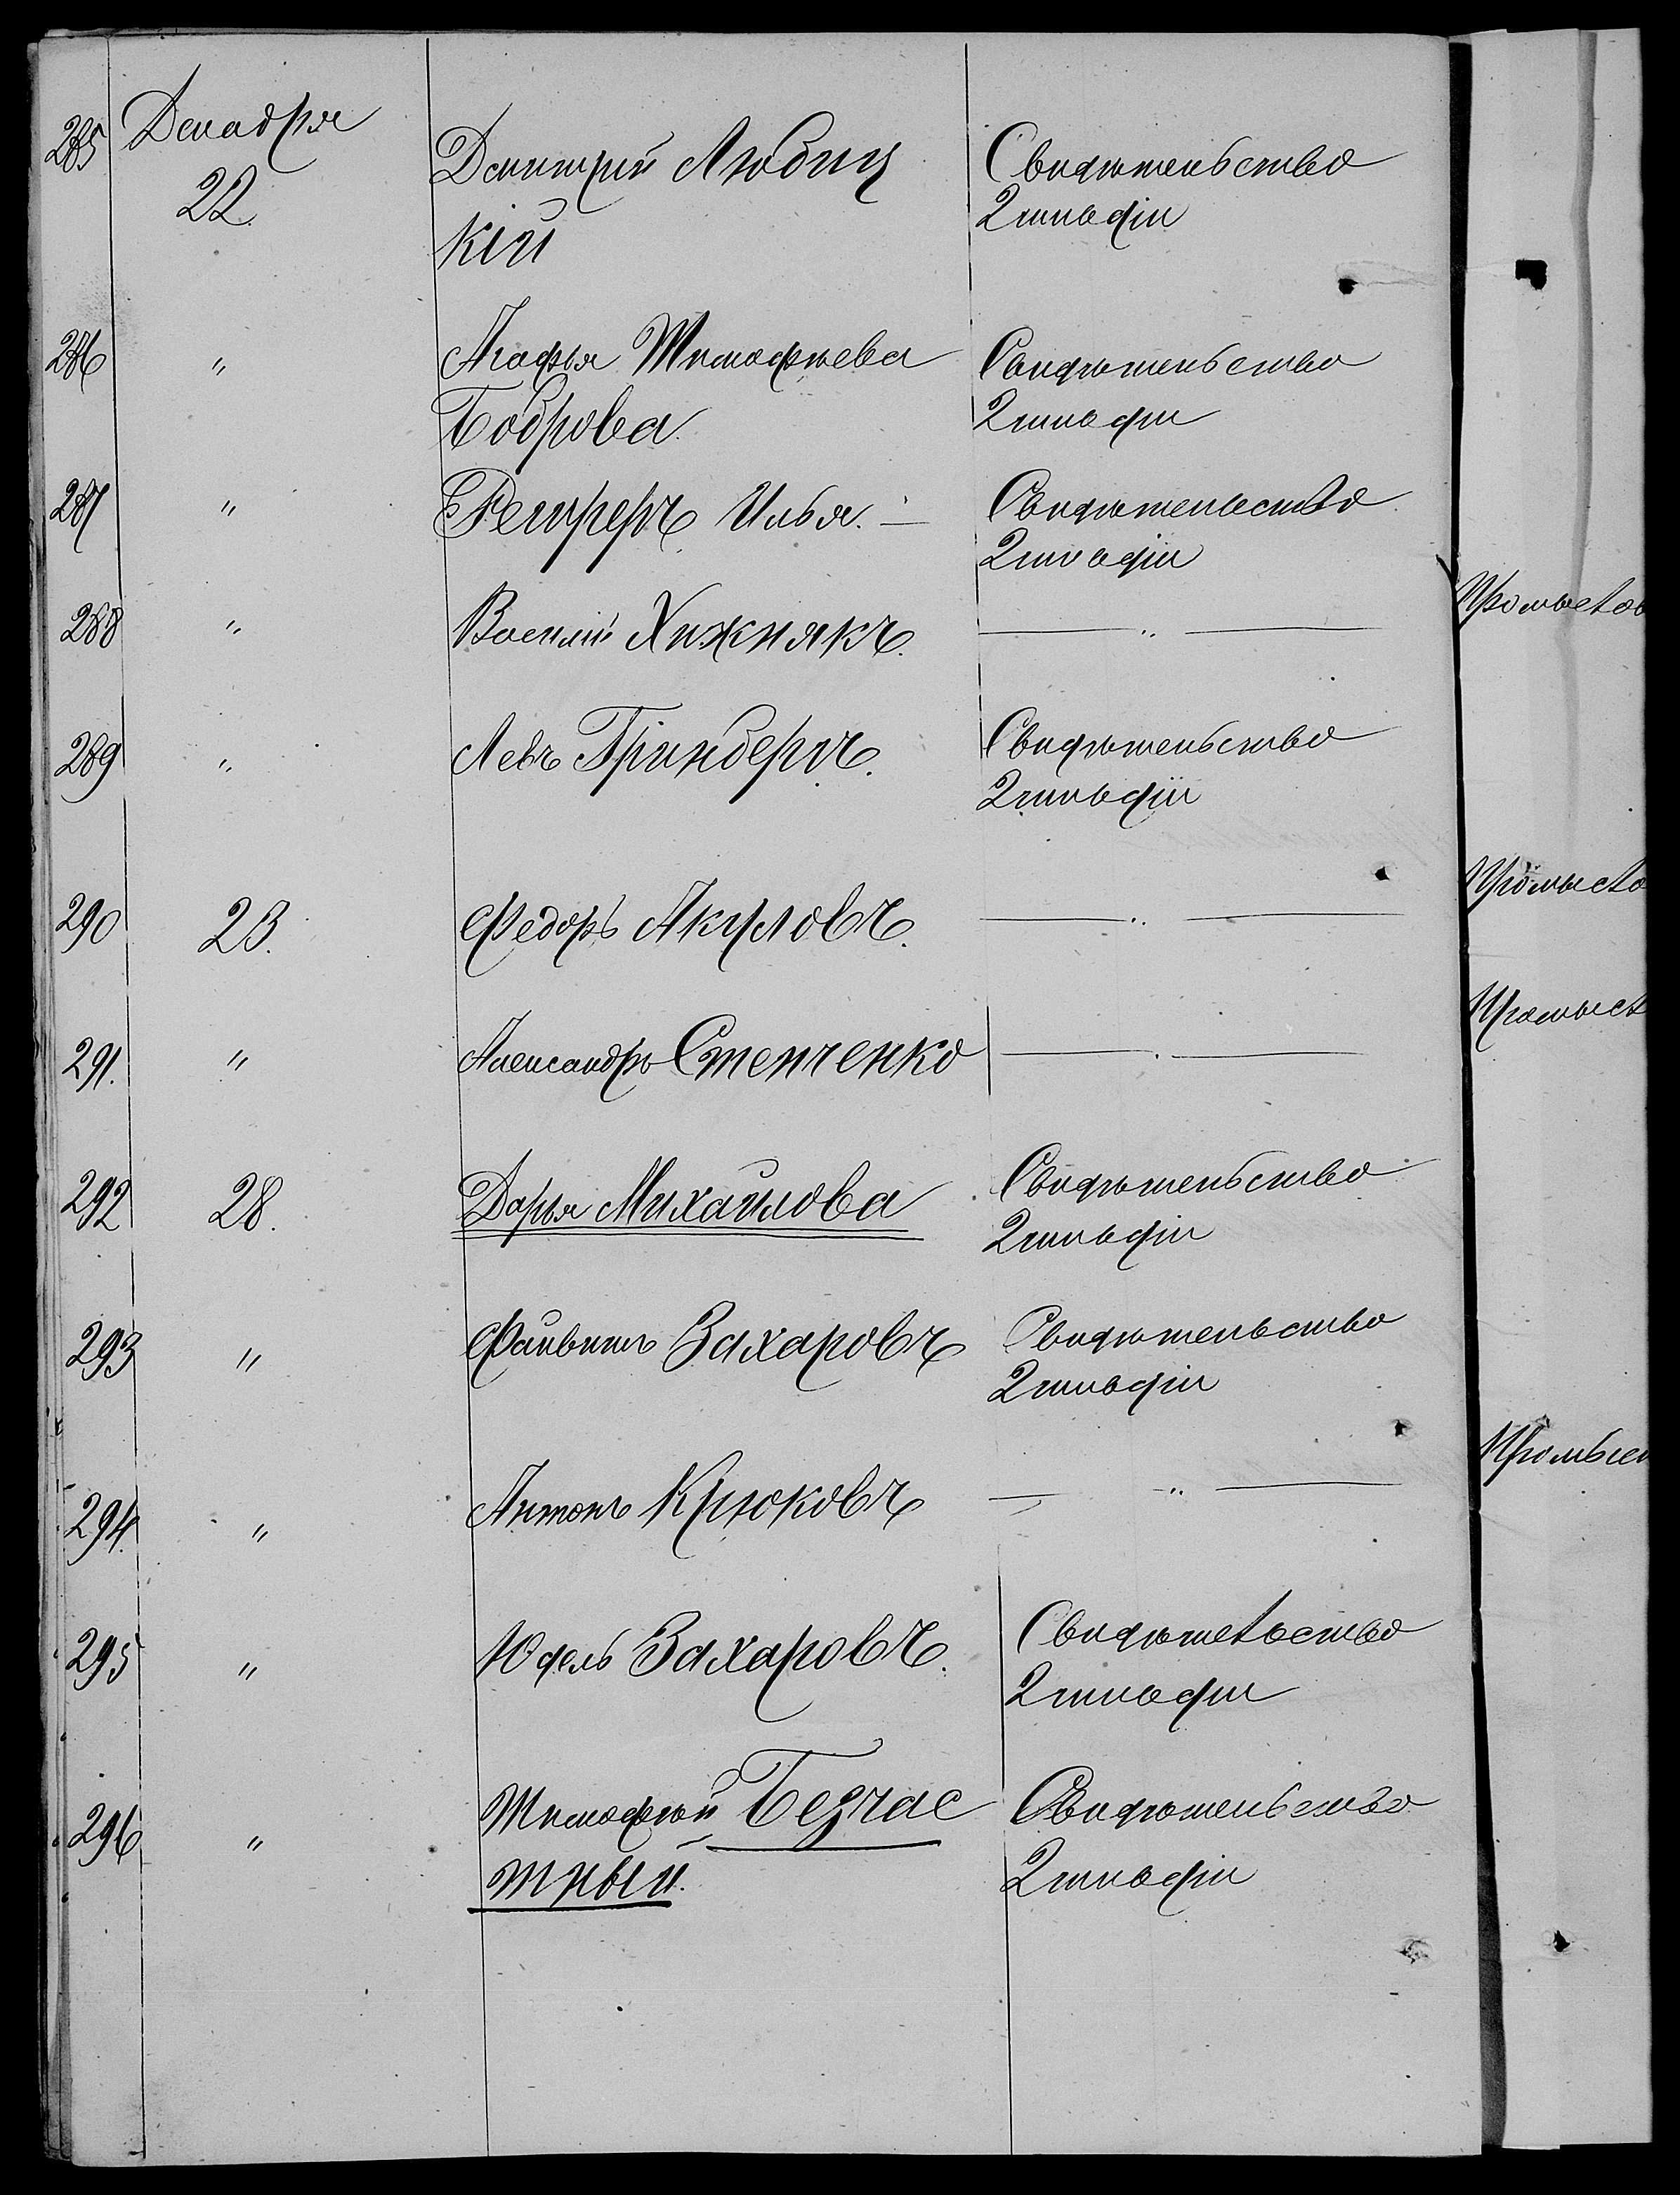 285 Декабря Дмитрий Любиц Свидѣтельство
22. кій 2 гильдіи
286 " Агафья Тимофѣева Свидѣтельство
Боброва. 2 гильдіи
287 " Ремреръ Илья. — Свидѣтельство
2 гильдіи
288 " Василій Хижнякъ. — " — Промыслов
289 " Левъ Гринбергъ. Свидѣтельство
2 гильдіи
290 23. Федоръ Акуловъ. — " — Промысло
291. " Александръ Степченко — " — Промысл
292 28. Дарья Михайлова Свидѣтельство
2 гильдіи
293 " Файвишъ Захаровъ Свидѣтельство
2 гильдіи
294. " Антонъ Крюковъ — " — Промысл
295 " Юдель Захаровъ. Свидѣтельство
2 гильдіи
296 " Тимофѣй Безчас Свидѣтельство
тный. 2 гильдіи